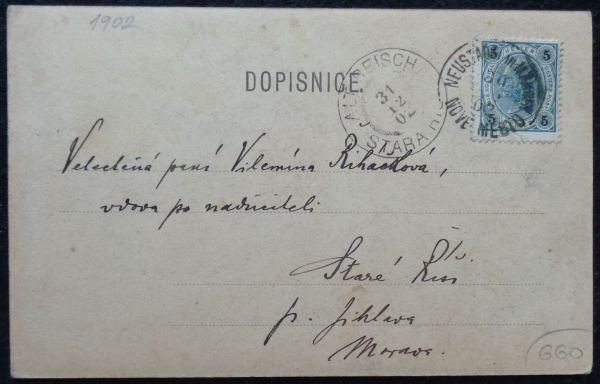 1902
DOPISNICE.
ALT-REISCH
31
12
02
STARÁ ŘÍŠ
NEUSTADTL
NOVÉ MĚSTO
5 5
5 5
Velectěná paní Vilemína Řiháčková,
vdova po nadučiteli
Staré Říši
p. Jihlava
Morava.
660